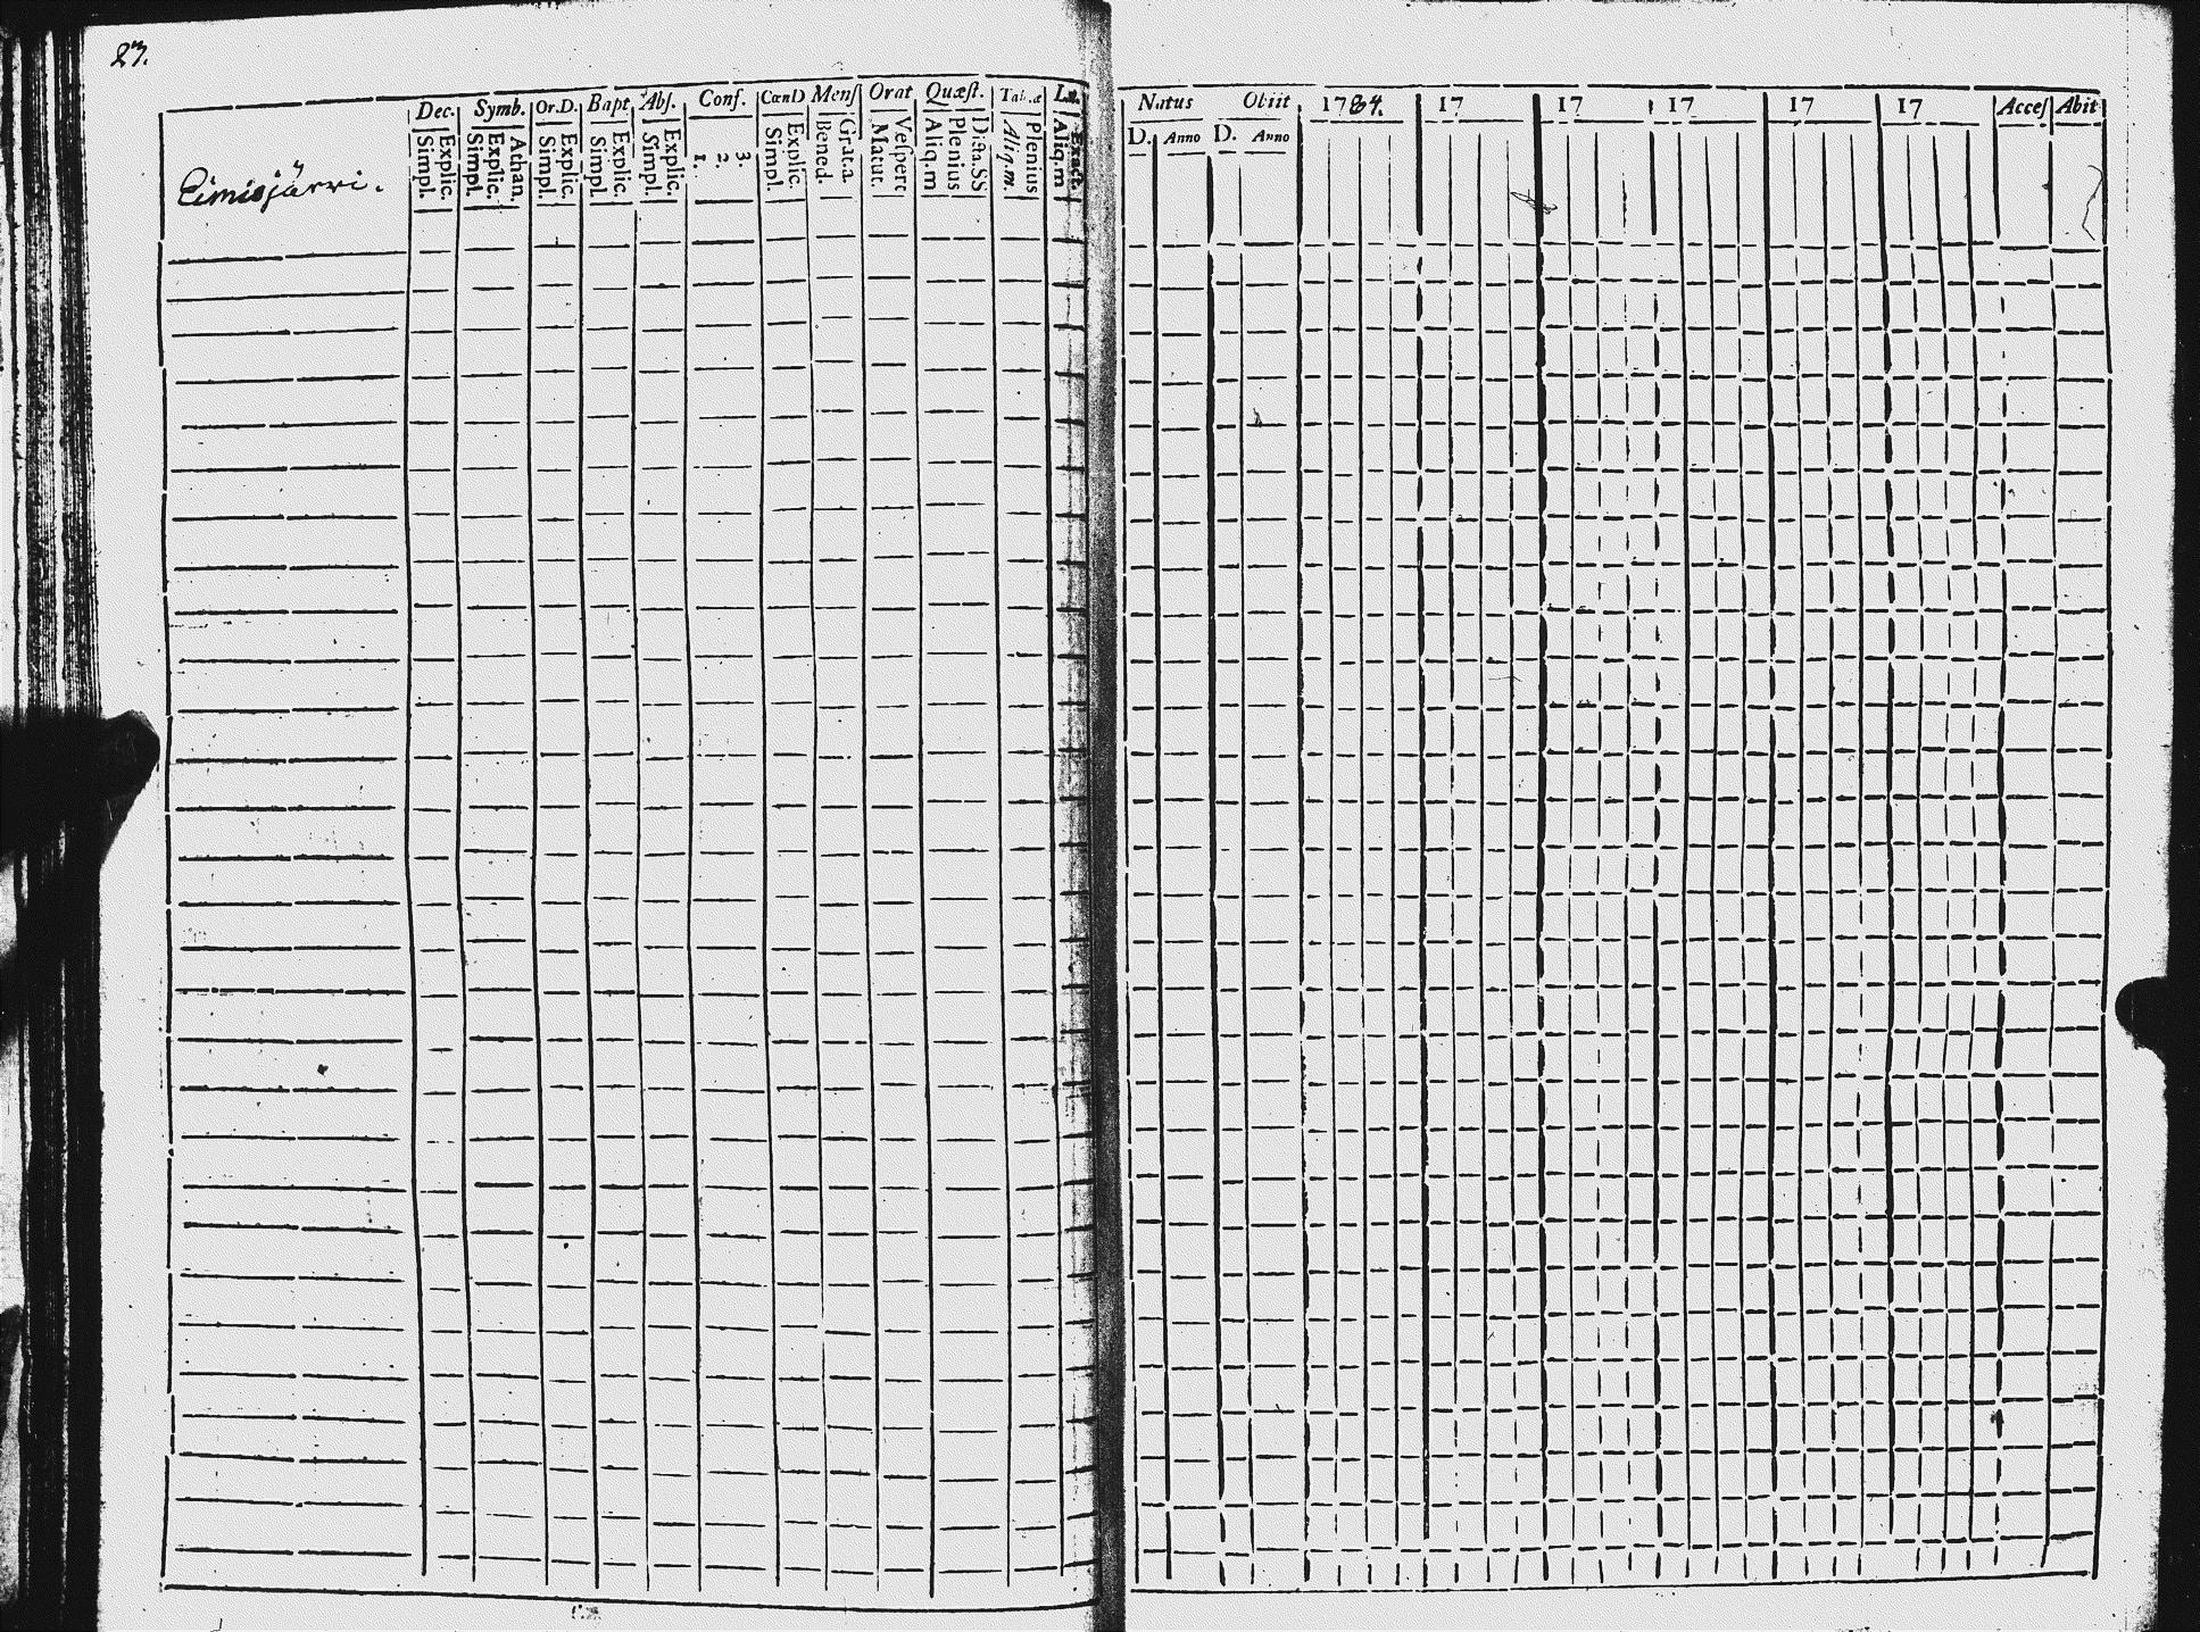 27.
Dec. Symb. Or.D. Bapt. Abſ. Conf. CœnD Menſ Orat Quæſt.
Simpl. Explic. Simpl. Explic. Athan. Simpl. Explic. Simpl. Explic. Simpl. Explic. 1. 2. 3. Simpl. Explic. Bened. Grat.a. Matut. Veſpert Aliq.m Plenius Dicta.SS Aliq.m. Plenius Aliq.m Exact.
Eimisjärvi.
Natus Obiit 1784. 17 17 17 17 17 Acceſ Abit
D. Anno D. Anno